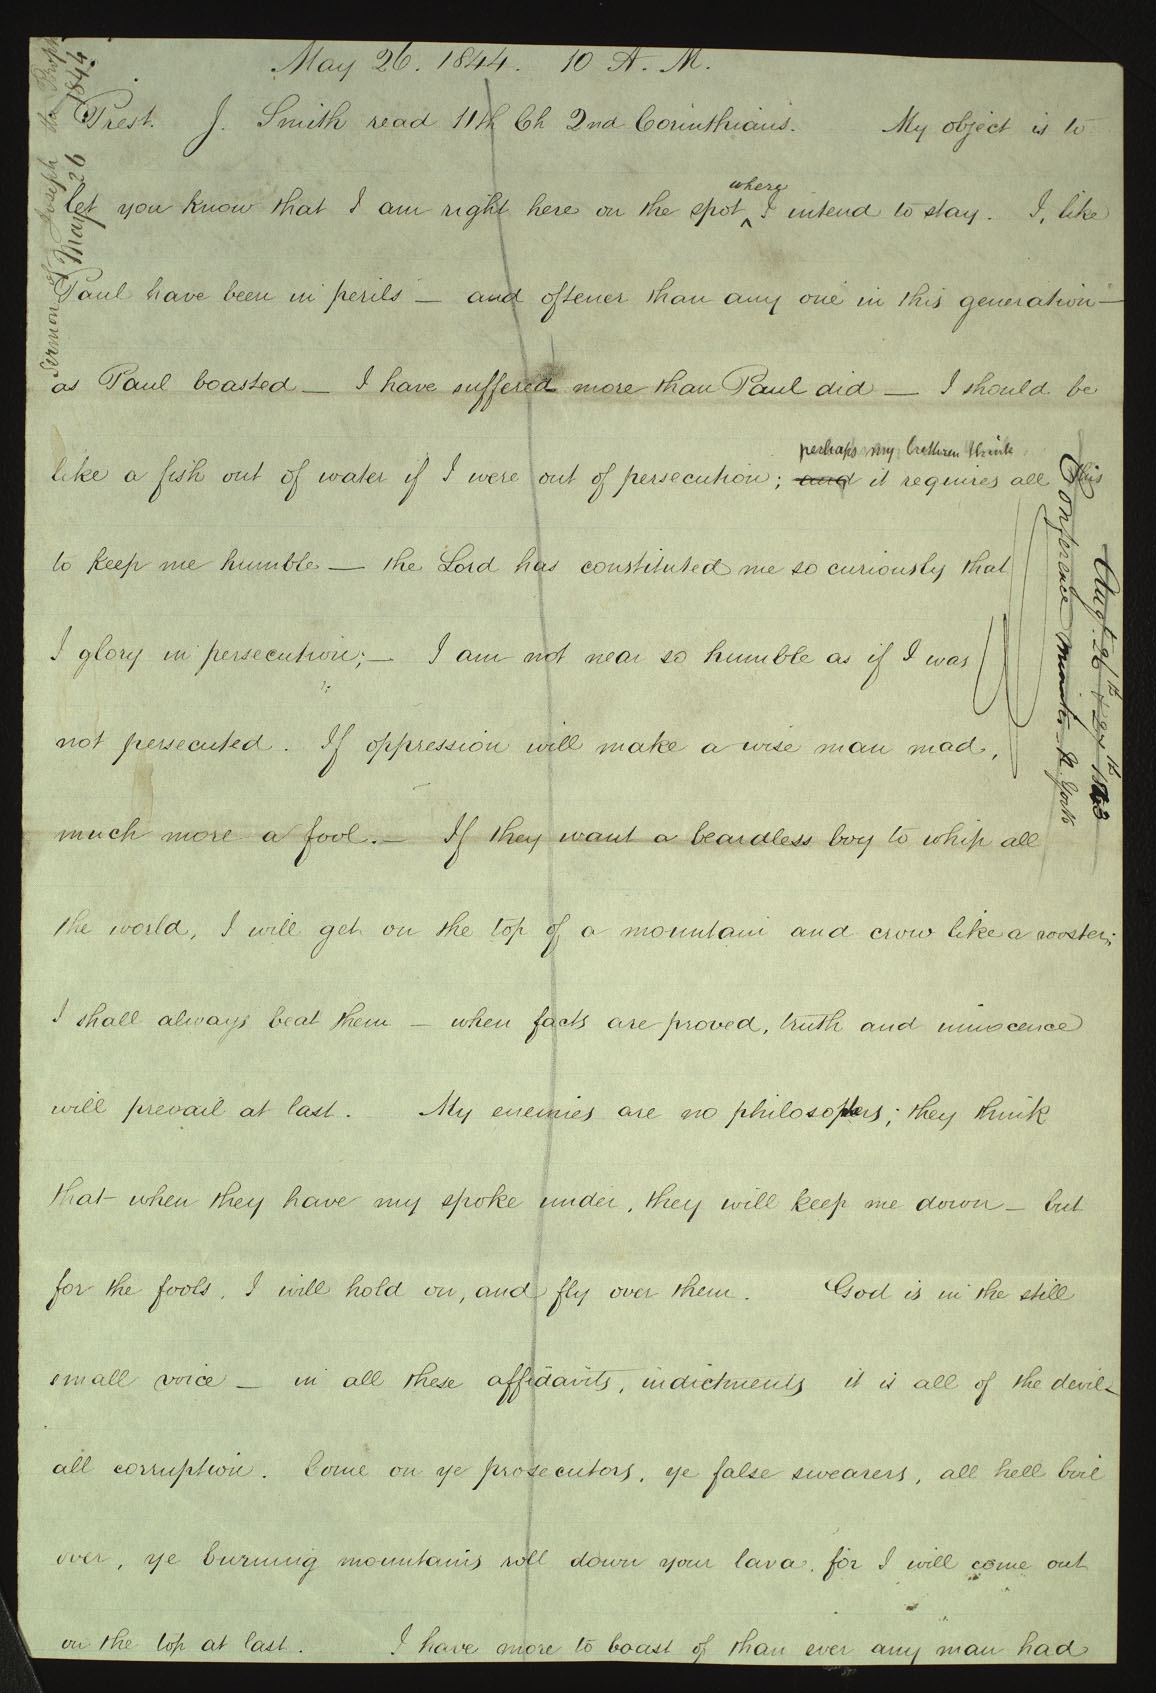 May 26. 1844. 10 A. M.
Prest. J. Smith read 11th Ch 2nd Corinthians. My object is to
let you know that I am right here on the spot ^where I intend to stay. I, like
Paul have been in perils — and oftener than any one in this generation —
as Paul boasted — I have suffered more than Paul did — I should be
like a fish out of water if I were out of persecution; and perhaps my brethren think it requires all this
to keep me humble — the Lord has constituted me so curiously that
I glory in persecution; — I am not near so humble as if I was
not persecuted. If oppression will make a wise man mad,
much more a fool. — If they want a beardless boy to whip all
the world, I will get on the top of a mountain and crow like a rooster;
I shall always beat them — when facts are proved, truth and innocence
will prevail at last. My enemies are no philosophers; they think
that when they have my spoke under, they will keep me down — but
for the fools, I will hold on, and fly over them. God is in the still
small voice — in all these affidavits, indictments it is all of the devil —
all corruption. Come on ye prosecutors, ye false swearers, all hell boil
over, ye burning mountains roll down your lava, for I will come out
on the top at last. I have more to boast of than ever any man had
Sermon of Joseph the Proph
May 26 1844.
Conference Minutes N. York
Augt. 26th & 27th 1843